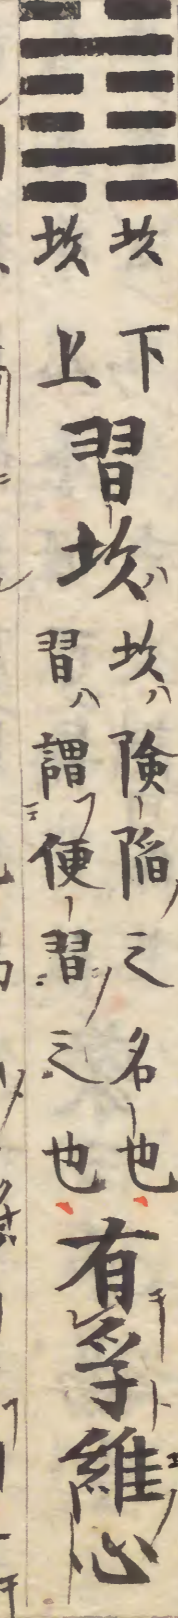 坎下
坎上
習坎
坎険陥之名也
習謂便習之也
有孚維心